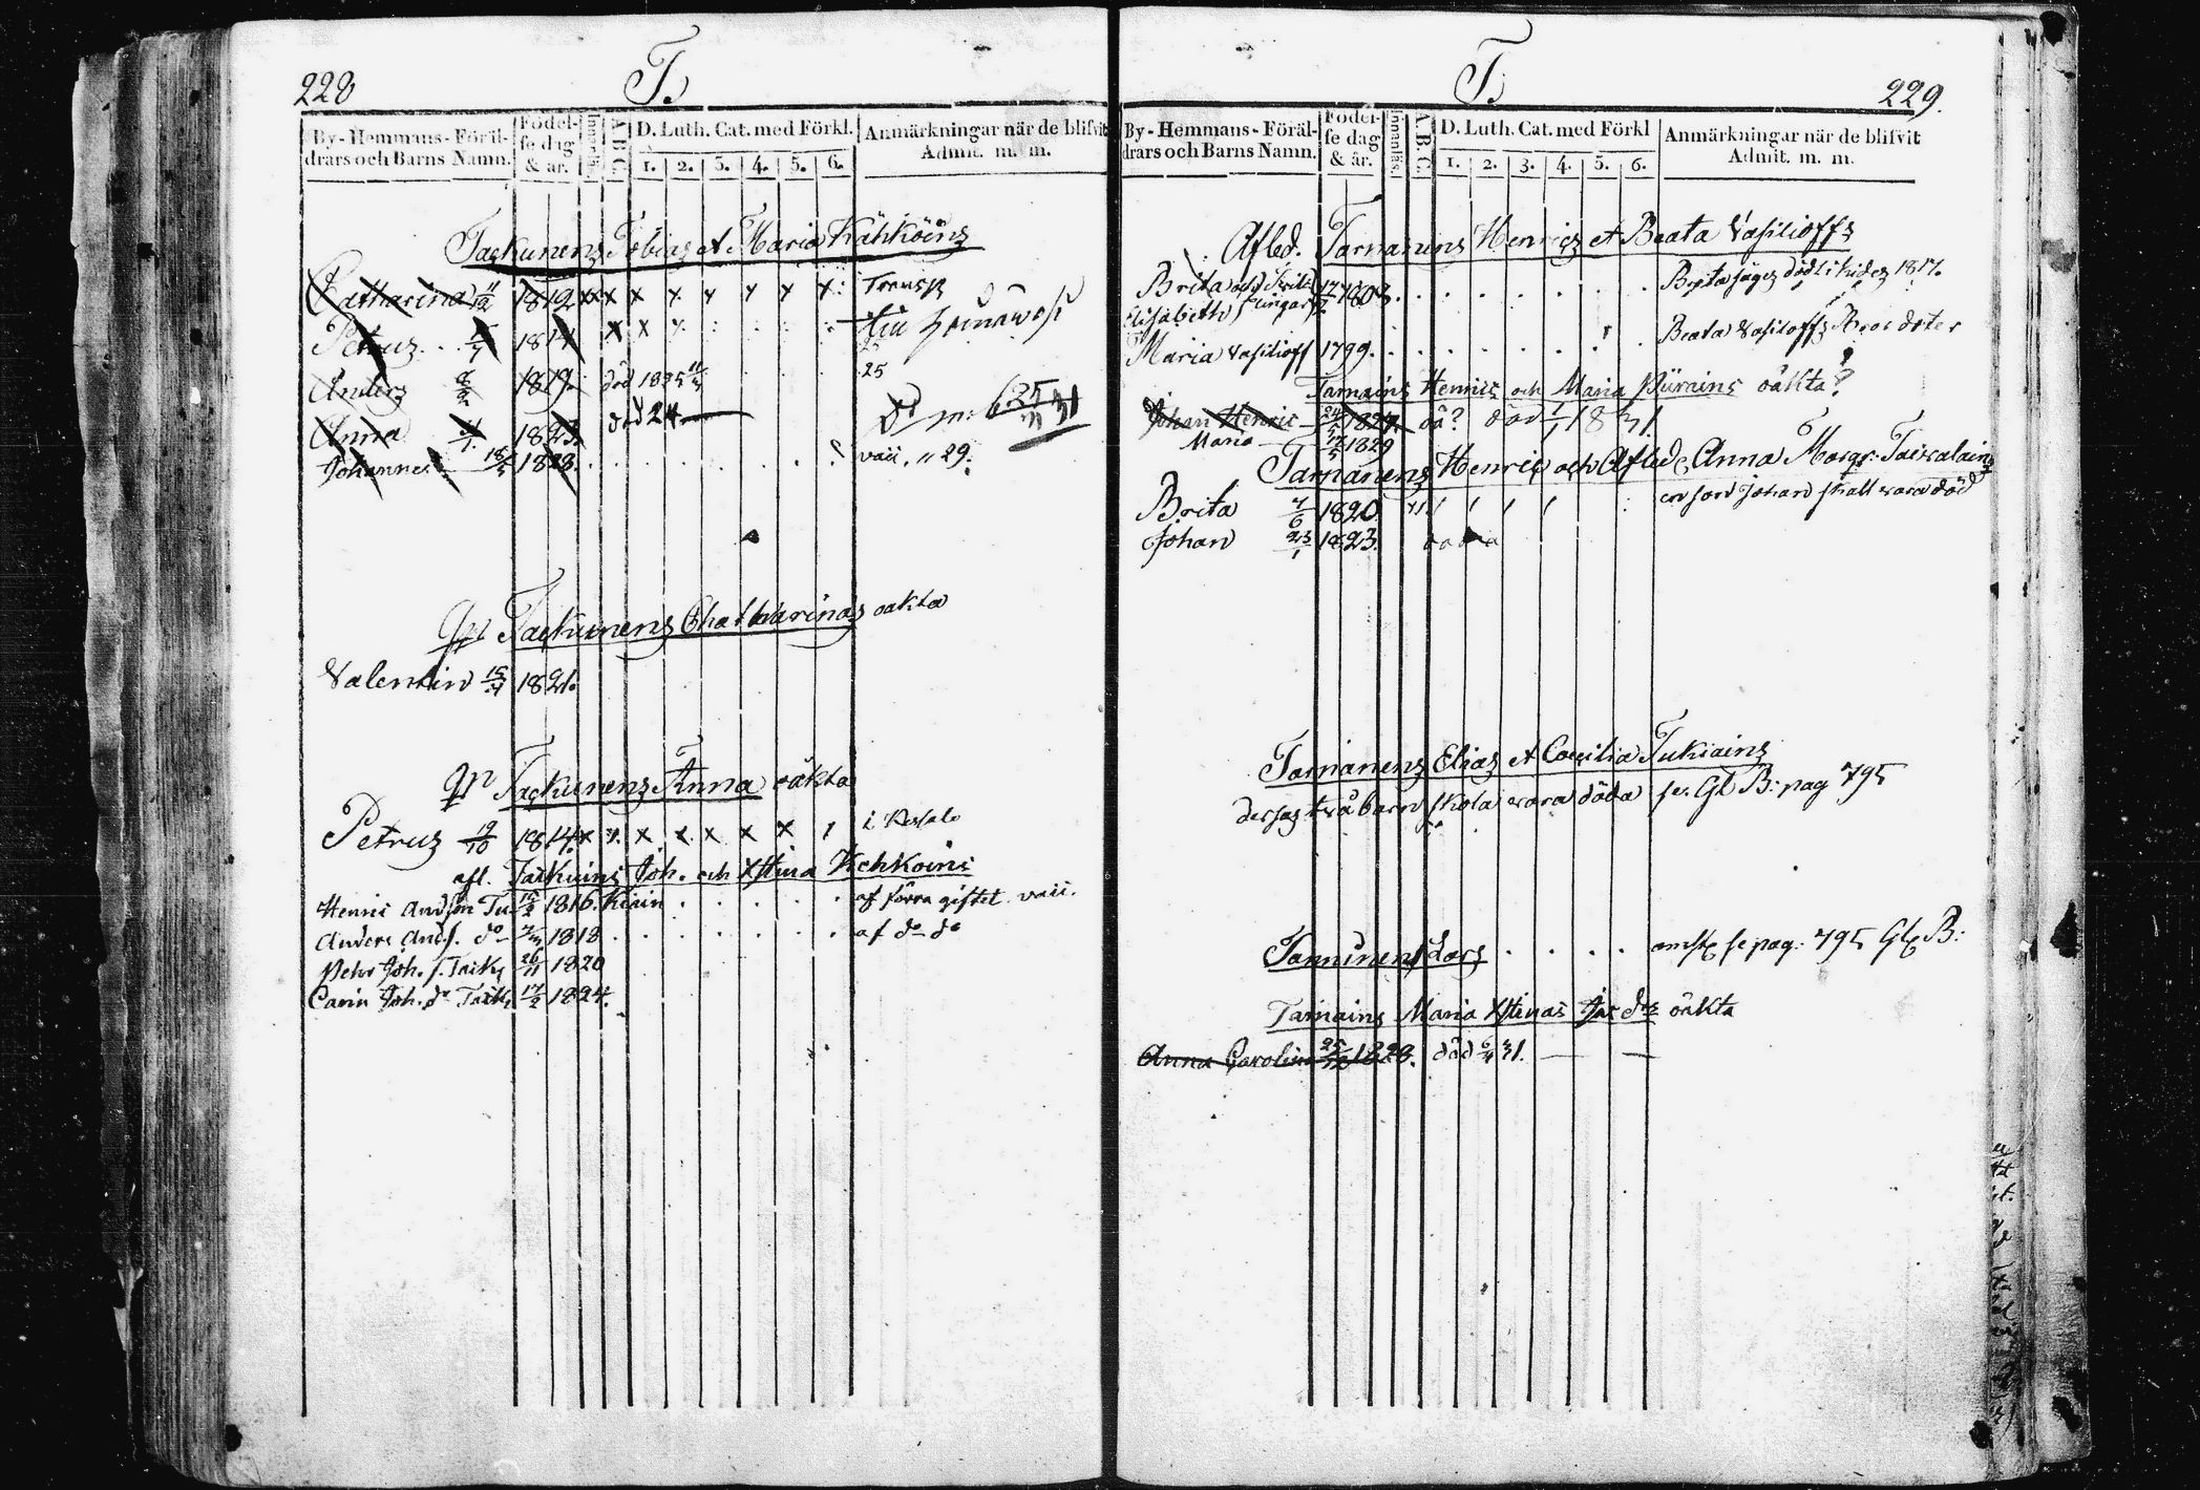 228
T.
By-Hemmans-Föräl-
drars och Barns Namn.
Födel-
se dag
& år.
Innanläs.
A. B. C.
D. Luth. Cat. med Förkl.
1. 2. 3. 4. 5. 6.
Anmärkningar när de blifvit
Admit. m. m.
Tackunens Tobias et Maria Kähköins
Catharina 11/12 1812 x x x x y y y y y Transp
Petrus 1814 x x y till
Anders 1819. död 1825 25
Anna 1823. död 24
Johannes 18/5 1828. vacc. " 29.
Tackunens Chatharinas oäkta
Valentin 15/4 1821.
Tackunens Anna oäkta
Petrus 19/10 1814. x x x x x x x i
afl. Taikuins Joh. och Xstina Kehkoins
Henric Andson Tu 1816. kiain af förra giftet vacc.
Anders And.s. do 1818 af do do
Pehr Joh. s. Taik 26/11 1820
Carin Joh. dr Taik 17/2 1824.
229.
T.
By-Hemmans-Föräl-
drars och Barns Namn.
Födel-
se dag
& år.
Innanläs.
A. B. C.
D. Luth. Cat. med Förkl
1. 2. 3. 4. 5. 6.
Anmärkningar när de blifvit
Admit. m. m.
Afled. Tarnanens Henrics et Beata Vasilioffs
Brita och 1803. Brita säges död 1817.
Elisabeth
Maria Vasilioff 1799. Beata Vasiloffs
Tarnains Henrics och Maria Pürains oäkta?
Johan Henric 24/5 1827. oä? död 1/1 1831.
Maria 12/5 1829
Tarnanens Henrics och Afled. Anna Margr. Tairalains
Brita 4/6 1820. en son Johan skall vara död
Johan 23/1 1823.
Tarnanens Elias et Cæcilia Tukiains
deras två barn skola vara döda se. Gl B: pag 795
Tanninen Lars se pag: 795 Gl B:
Tarnains Maria Xstinas oäkta
Anna Carolina 25/12 1828. död 6/4 31.